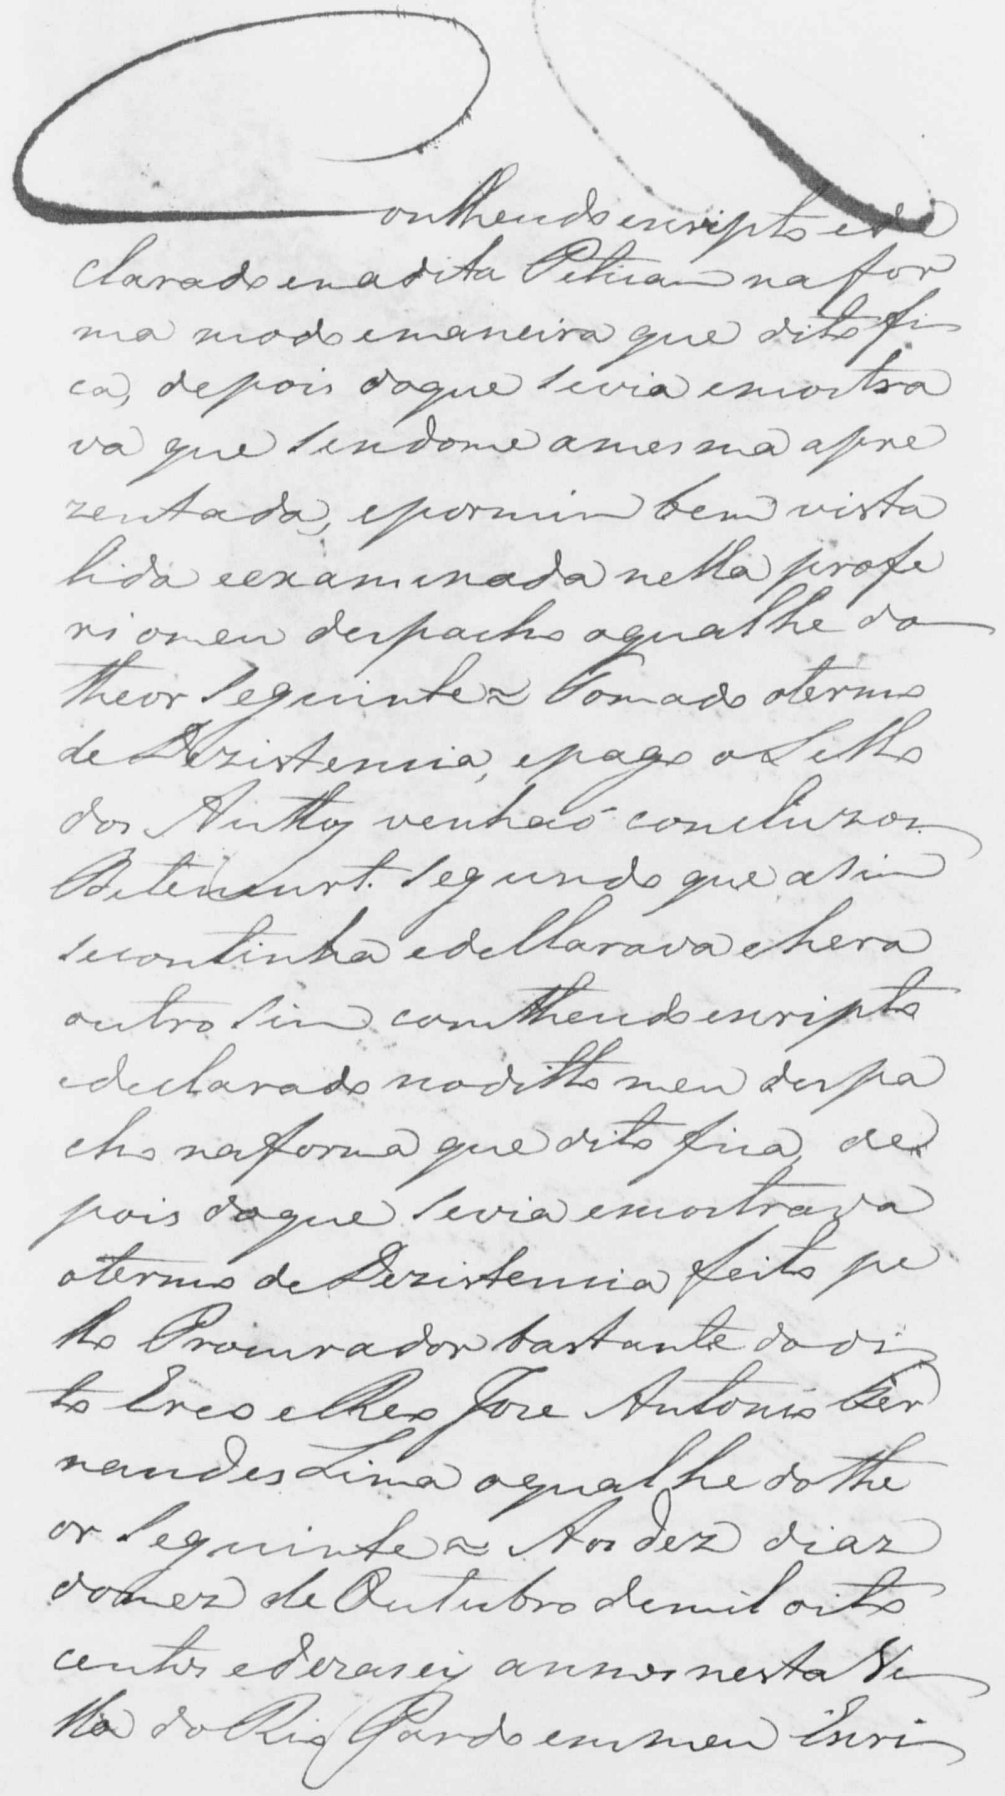 Contheudo escripto e de
clarado em a dita Peticam na for
ma modo e maneira que dito fi
ca, depois do que se via e mostra
va que sendome a mesma apre
zentada, e por mim bem vista
lida e examinada nella profe
ri o meu despacho o qual he do
theor seguinte = Tomado o termo
de Dezistencia, e pago o Sello
dos Authos venhaõ concluzos
Betencurt. Segundo que asim
se continha e decllarava e hera
outro sim comtheudo escripto
e declarado no ditto meu despa
cho na forma que dito fica, de
pois do que se via e mostrava
o termo de Dezistencia feito pe
llo Procurador bastante do di
to Ereo e Reo Joze Antonio Fer
nandes Lima o qual he do the
or seguinte = Aos dez diaz
do mez de Outubro de mil oito
centos e dezaseis annos nesta Vi
lla do Rio Pardo em meu Escri